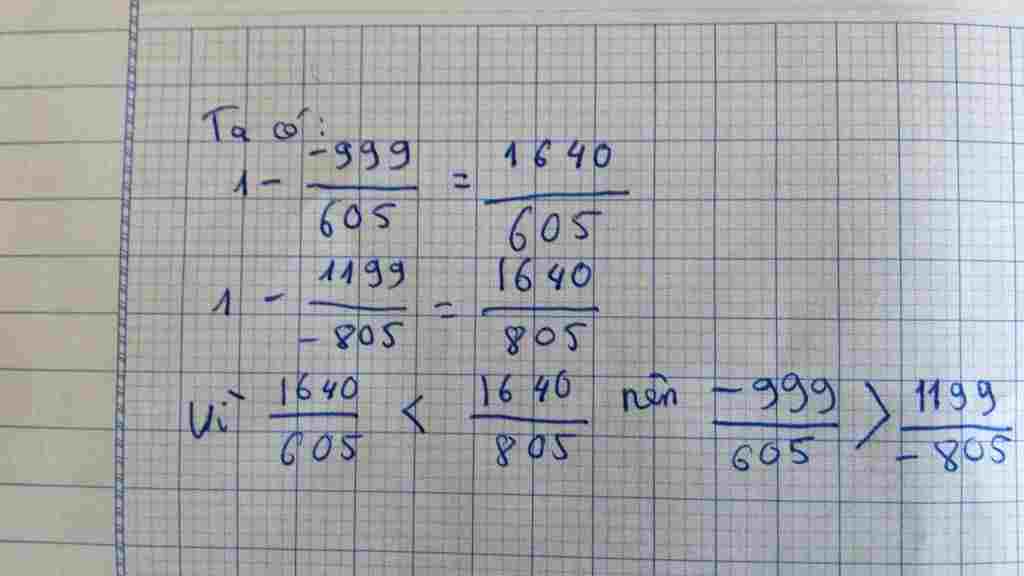 Ta có:
1 - \frac{-999}{605} = \frac{1640}{605}
1 - \frac{1199}{-805} = \frac{1640}{805}
Vì \frac{1640}{605} < \frac{1640}{805} nên \frac{-999}{605} > \frac{1199}{-805}